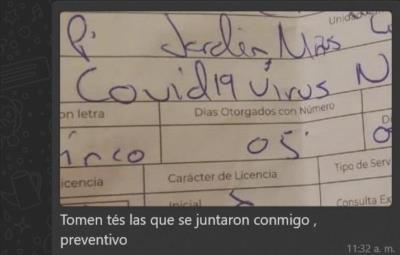 Unida
P. Jardín Mrs
Covid19 Virus N
on letra
Dias Otorgados con Número
inco
05
icencia
Carácter de Licencia
Tipo de Serv
Inicial
Consulta Ex
Tomen tés las que se juntaron conmigo ,
preventivo
11:32 a. m.